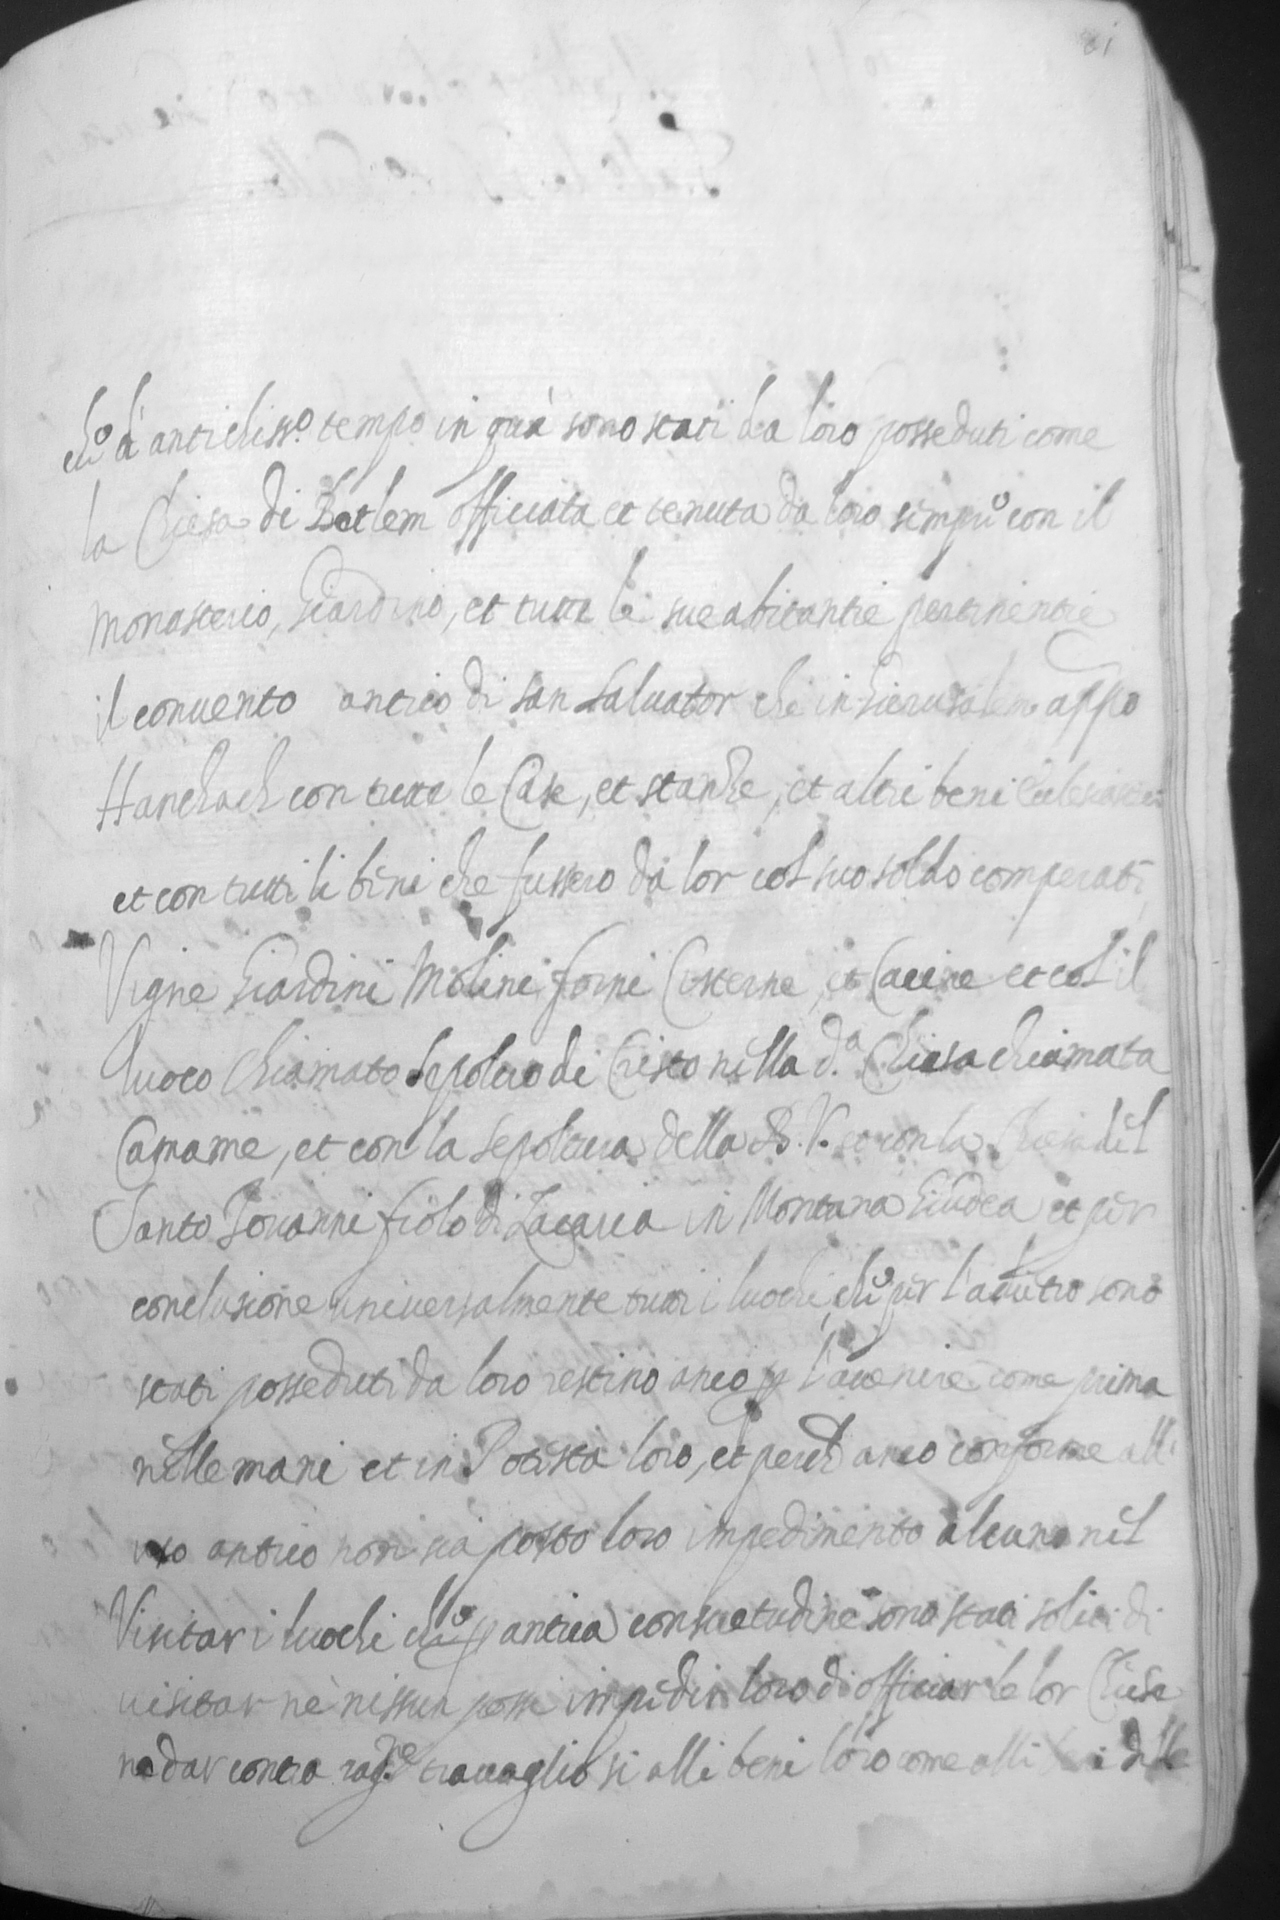 81
che da antichiss.o tempo in quà sono stati da loro posseduti come
la Chiesa di Betlem officiata et tenuta da loro sempre con il
monasterio, Giardino, et tutte le sue abitantie pertinentie
il conuento antico di san Saluator che in Hierusalem appo
Hanchach con tutte le Case, et stanhe, et altri beni Eclesiastici
et con tutti li beni che fussero da lor col suo soldo comperati
Vigne Giardini Molini forni Cisterne, et Cauine et col il
luoco Chiamato Sepolcro di Cristo nella d.a Chiesa chiamata
Camame, et con la sepoltura della B. V. et con la Chiesa del
Santo Giouanni fiolo di Zacaria in Montana Giudea et per
conclusione uniuersalmente tutti i luochi che per l'adietro sono
stati posseduti da loro restino anco p l'auenire come prima
nelle mani et in Potesta loro, et perche anco conforme alli
uso antico non sia posto loro impedimento alcuno nel
Visitar i luochi che p antica consuetudine sono stati soliti di
uisitar ne nissun posse impedir loro di officiar le lor Chiese
ne dar contra rag.ne trauaglio si alli beni loro come alli delle